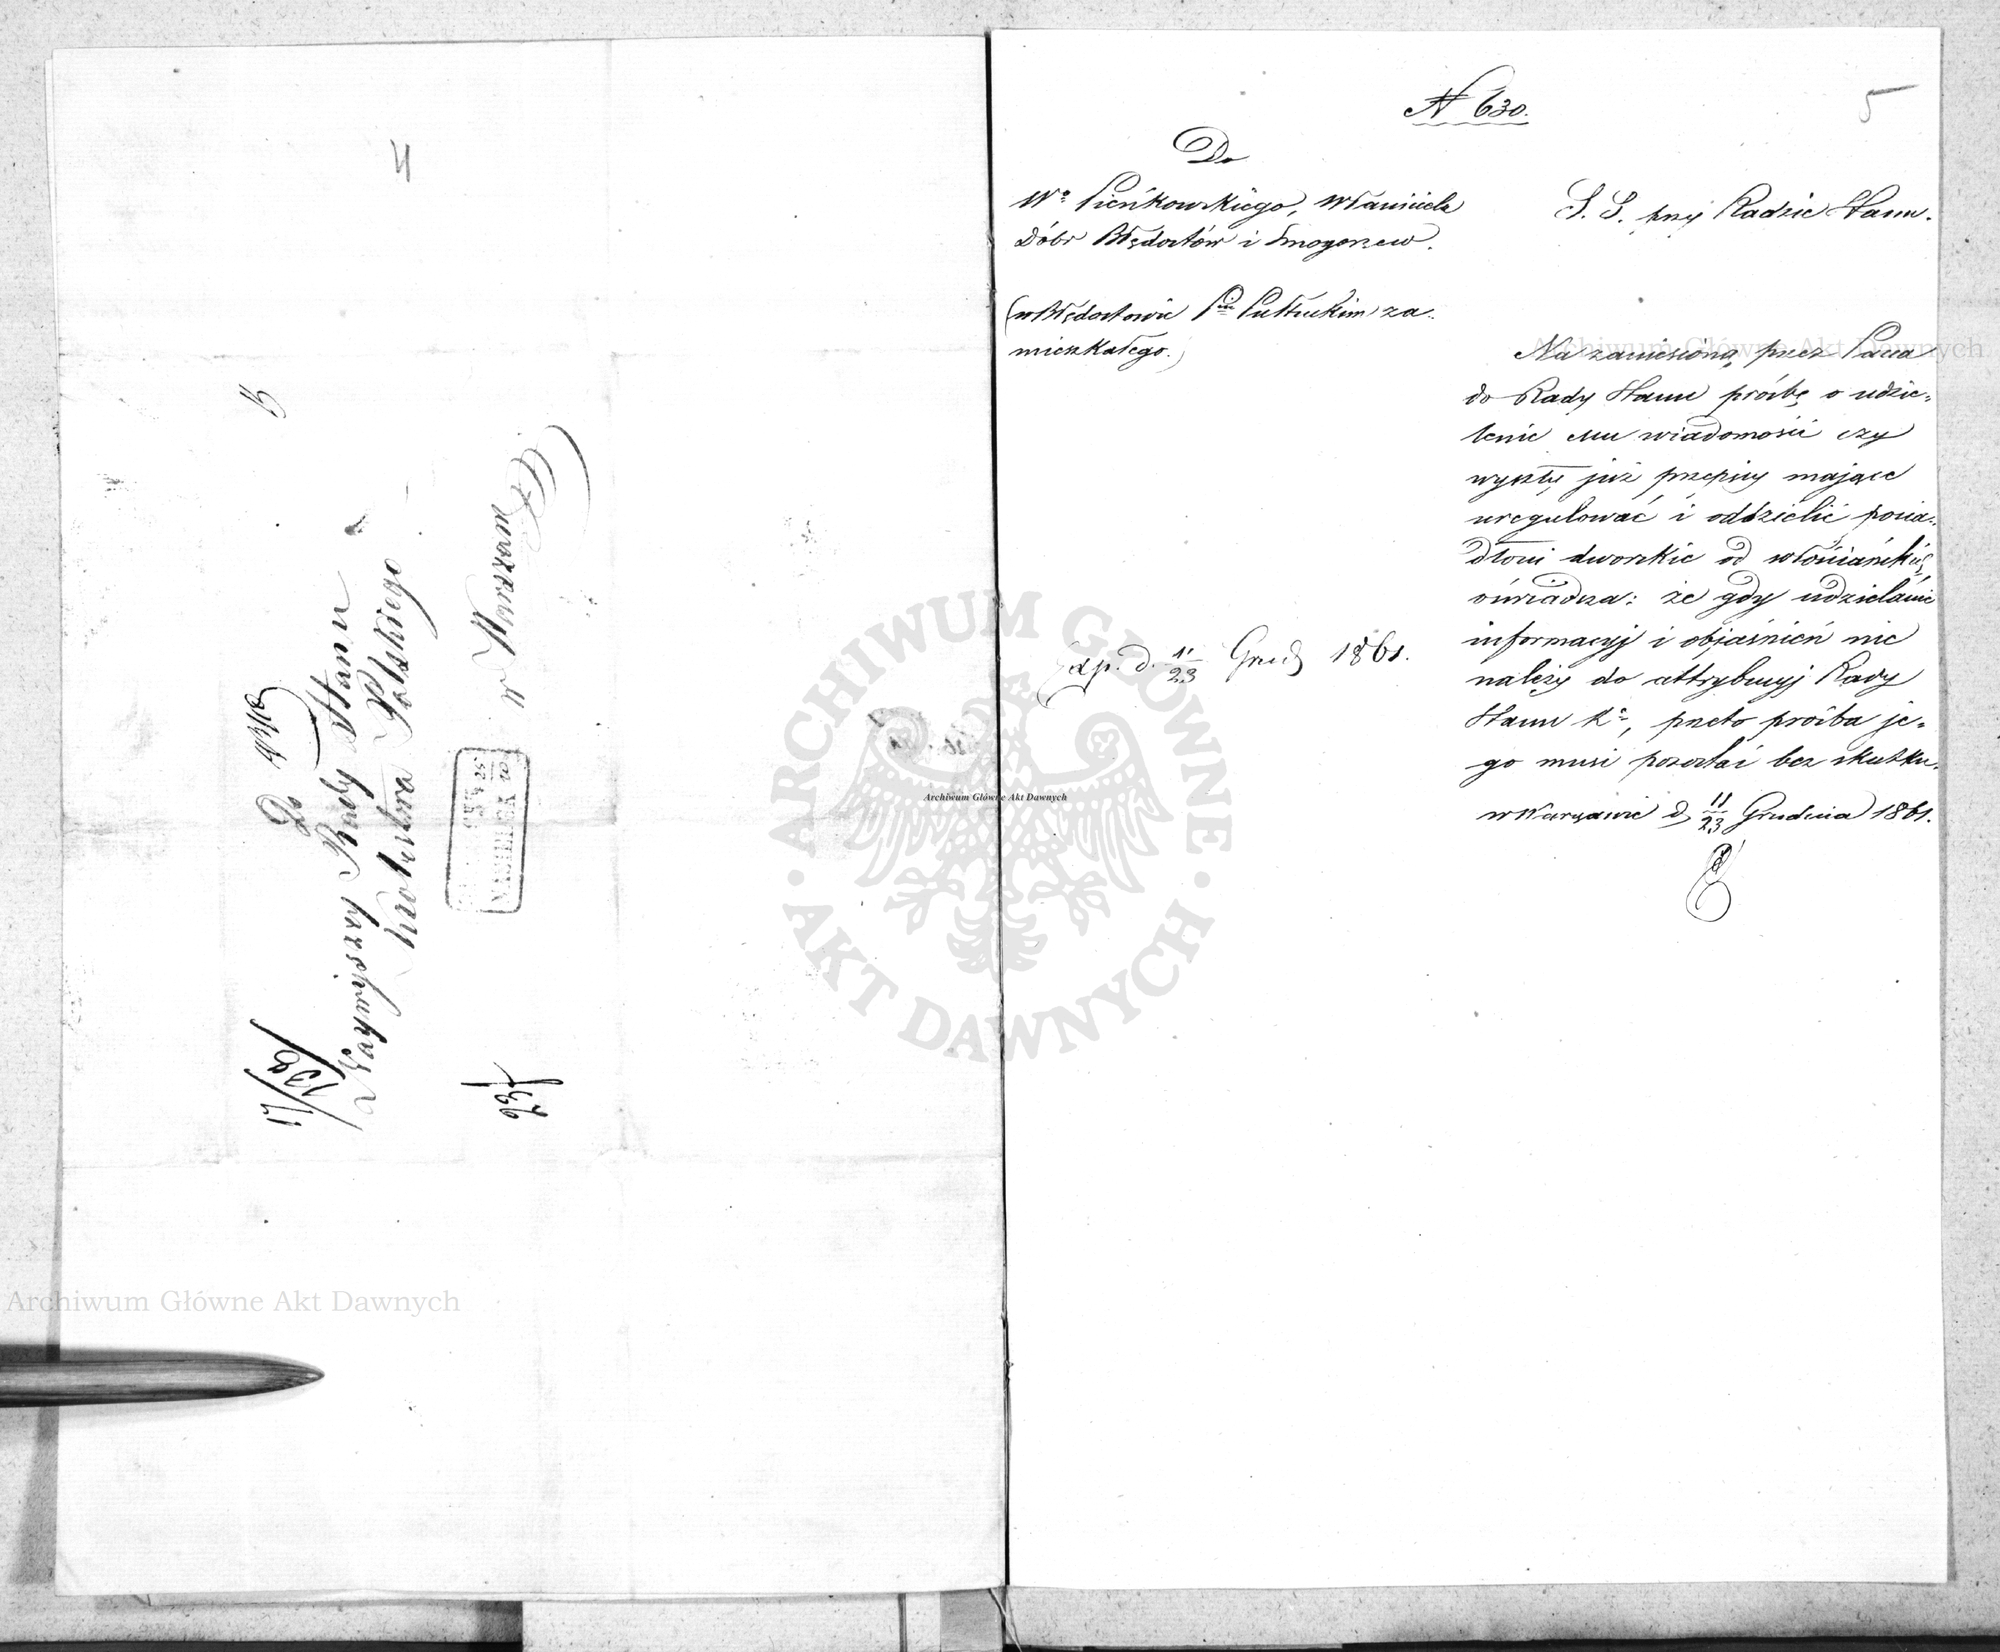 4
Do
Najwyższey Rady Stanu
Królestwa Polskiego
w Warszawie
NASIELSK
Archiwum Główne Akt Dawnych
5
N 630.
Do
Wo Pieńkowskiego, Właściciela
Dóbr Błędostów i Smogorzew.
(w Błędostowie Pcie Pułtuskim za-
mieszkałego.)
Exp. d. 11/23 Grud 1861.
S. S. przy Radzie Stanu.
Na zaniesioną przez Pana
do Rady Stanu prośbę o udzie-
lenie mu wiadomości czy
wyszły już przepisy mające
uregulować i oddzielić posia-
dłości dworskie od włościańskich,
oświadcza: że gdy udzielanie
informacyj i objaśnień nie
należy do attrybucyj Rady
Stanu Ka, przeto prośba je-
go musi pozostać bez skutku.
w Warszawie d. 11/23 Grudnia 1861.
Archiwum Główne Akt Dawnych
Archiwum Główne Akt Dawnych
ARCHIWUM GŁÓWNE
AKT DAWNYCH